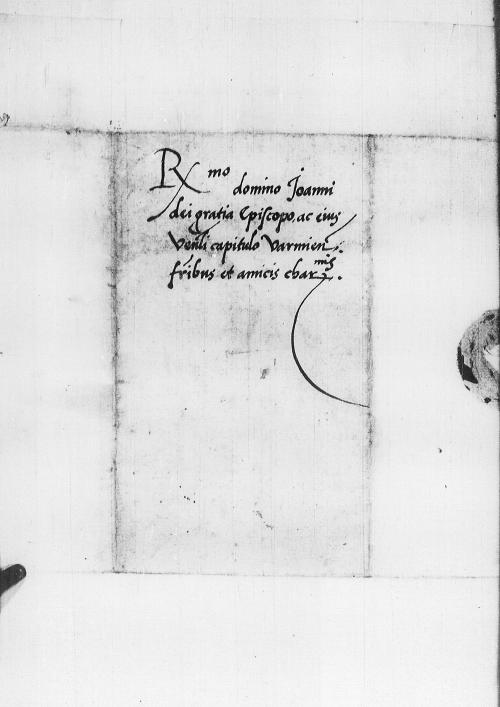 Rmo domino Joanni
dei gratia Episcopo, ac eius
Venli capitulo Varmien:
fribus et amicis charmis.